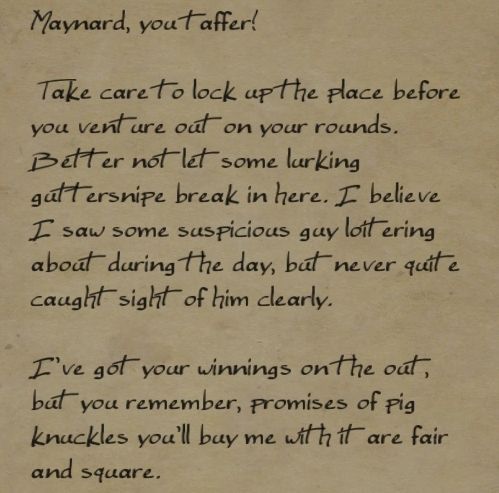 Maynard, you taffer!
Take care to lock up the place before
you venture out on your rounds.
Better not let some lurking
guttersnipe break in here. I believe
I saw some suspicious guy loitering
about during the day, but never quite
caught sight of him clearly.
I've got your winnings on the out,
but you remember, promises of pig
knuckles you'll buy me with it are fair
and square.